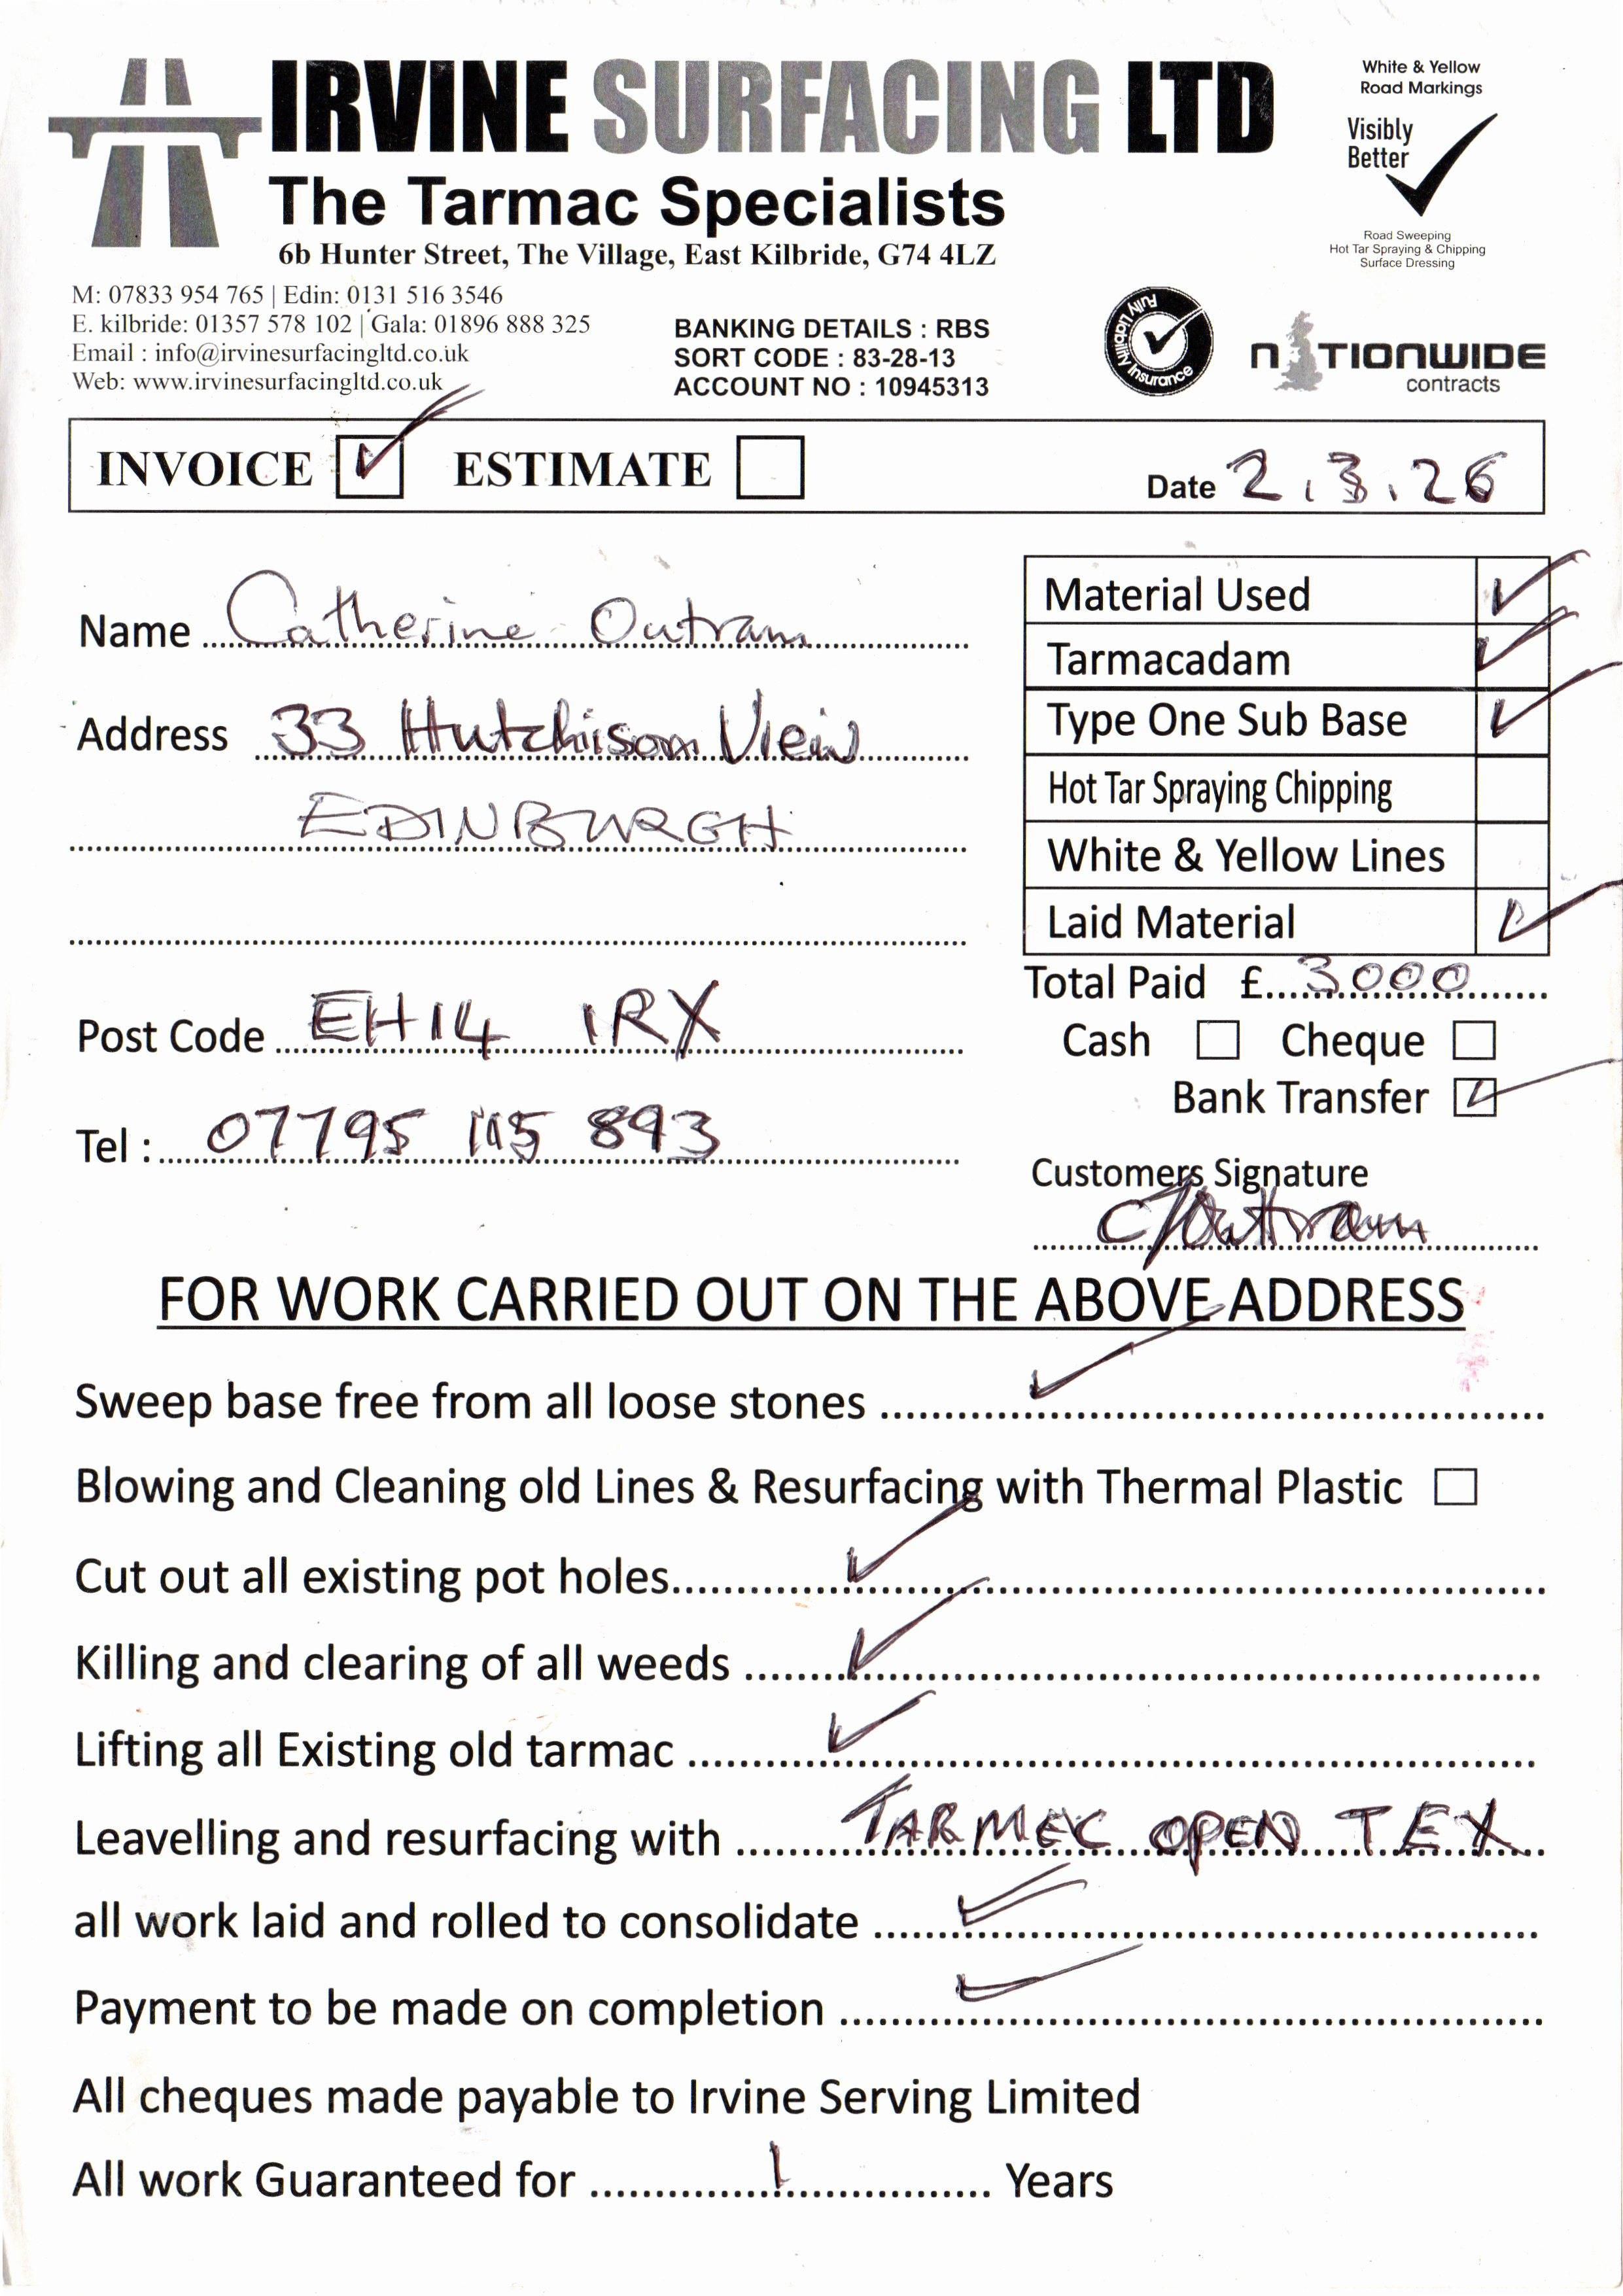 IRVINE SURFACING LTD
The Tarmac Specialists
6b Hunter Street, The Village, East Kilbride, G74 4LZ
White & Yellow
Road Markings
Visibly
Better
Road Sweeping
Hot Tar Spraying & Chipping
Surface Dressing
M: 07833 954 765 | Edin: 0131 516 3546
E. kilbride: 01357 578 102 | Gala: 01896 888 325
Email : info@irvinesurfacingltd.co.uk
Web: www.irvinesurfacingltd.co.uk
BANKING DETAILS : RBS
SORT CODE : 83-28-13
ACCOUNT NO : 10945313
Fully Liability Insurance
nATIONWIDE
contracts
INVOICE ESTIMATE Date 2.3.26
Name Catherine Outram
Address 33 Hutchison View
EDINBURGH
Post Code EH14 1RX
Tel : 07795 115 893
Material Used
Tarmacadam
Type One Sub Base
Hot Tar Spraying Chipping
White & Yellow Lines
Laid Material
Total Paid £ 3000
Cash Cheque
Bank Transfer
Customers Signature
COutram
FOR WORK CARRIED OUT ON THE ABOVE ADDRESS
Sweep base free from all loose stones
Blowing and Cleaning old Lines & Resurfacing with Thermal Plastic
Cut out all existing pot holes
Killing and clearing of all weeds
Lifting all Existing old tarmac
Leavelling and resurfacing with TARMEC OPEN TEX
all work laid and rolled to consolidate
Payment to be made on completion
All cheques made payable to Irvine Serving Limited
All work Guaranteed for 1 Years